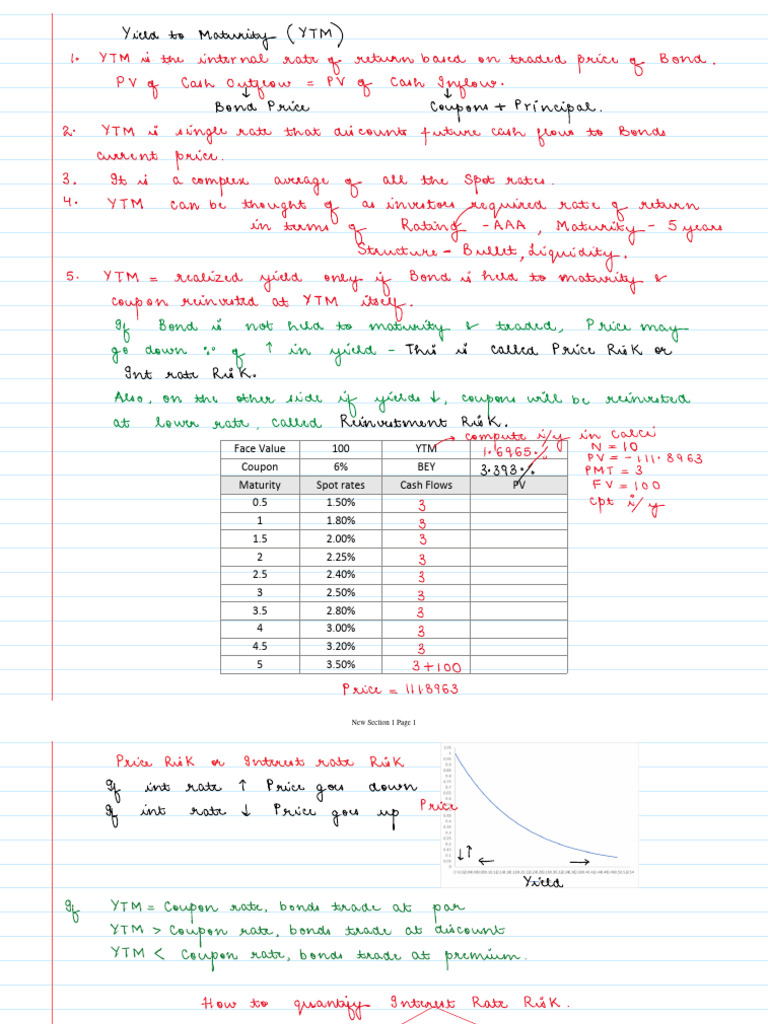 Yield to Maturity (YTM)
1. YTM is the internal rate of return based on traded price of Bond.
PV of Cash Outflow = PV of Cash Inflow.
↓ ↓
Bond Price Coupons + Principal.
2. YTM is single rate that discounts future cash flow to Bonds
current price.
3. It is a complex average of all the Spot rates.
4. YTM can be thought of as investors required rate of return
in terms of Rating - AAA, Maturity - 5 years
Structure - Bullet, Liquidity.
5. YTM = realized yield only if Bond is held to maturity &
coupon reinvested at YTM itself.
If Bond is not held to maturity & traded, Price may
go down ∵ of ↑ in yield - This is called Price Risk or
Int rate Risk.
Also, on the other side if yields ↓, coupons will be reinvested
at lower rate, called Reinvestment Risk.
→ compute i/y in calci
Face Value 100 YTM 1.6965%
Coupon 6% BEY 3.393%
N = 10
PV = -111.8963
PMT = 3
FV = 100
cpt i/y
Maturity Spot rates Cash Flows PV
0.5 1.50% 3
1 1.80% 3
1.5 2.00% 3
2 2.25% 3
2.5 2.40% 3
3 2.50% 3
3.5 2.80% 3
4 3.00% 3
4.5 3.20% 3
5 3.50% 3+100
Price = 111.8963
New Section 1 Page 1
Price Risk or Interest rate Risk
If int rate ↑ Price goes down
If int rate ↓ Price goes up
Price
↓↑ ← →
Yield
If YTM = Coupon rate, bonds trade at par
YTM > Coupon rate, bonds trade at discount
YTM < Coupon rate, bonds trade at premium.
How to quantify Interest Rate Risk.